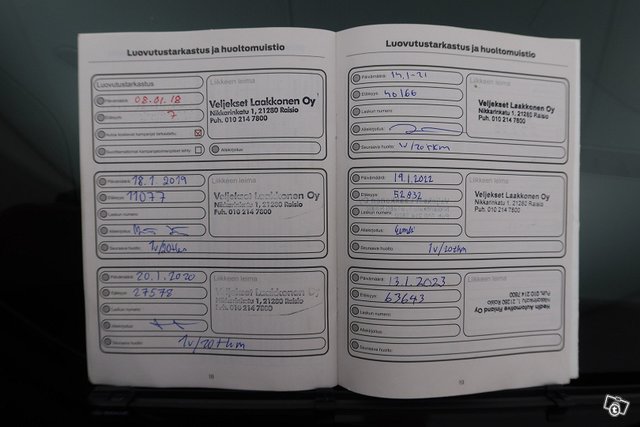 Luovutustarkastus ja huoltomuistio
Luovutustarkastus
Päivämäärä: 08.01.18
Etäisyys: 7
Liikkeen leima
Veljekset Laakkonen Oy
Nikkarinkatu 1, 21280 Raisio
Puh. 010 214 7800
Allekirjoitus:
Päivämäärä: 18.1.2019
Etäisyys: 11077
Laskun numero:
Allekirjoitus:
Seuraava huolto: 1v/20tkm
Liikkeen leima
Veljekset Laakkonen Oy
Nikkarinkatu 1, 21280 Raisio
Puh. 010 214 7800
Päivämäärä: 20.1.2020
Etäisyys: 27578
Laskun numero:
Allekirjoitus:
Seuraava huolto: 1v/20tkm
Liikkeen leima
Veljekset Laakkonen Oy
Nikkarinkatu 1, 21280 Raisio
Puh. 010 214 7800
18
Luovutustarkastus ja huoltomuistio
Päivämäärä: 14.1-21
Etäisyys: 40166
Laskun numero:
Allekirjoitus:
Seuraava huolto: 1v/20tkm
Liikkeen leima
Veljekset Laakkonen Oy
Nikkarinkatu 1, 21280 Raisio
Puh. 010 214 7800
Päivämäärä: 19.1.2022
Etäisyys: 52832
Laskun numero:
Allekirjoitus:
Seuraava huolto: 1v/20tkm
Liikkeen leima
Veljekset Laakkonen Oy
Nikkarinkatu 1, 21280 Raisio
Puh. 010 214 7800
Päivämäärä: 13.1.2023
Etäisyys: 63643
Laskun numero:
Allekirjoitus:
Seuraava huolto:
Liikkeen leima
Hedin Automotive Finland Oy
Nikkarinkatu 1, 21280 Raisio
Puh. 010 214 7800
19